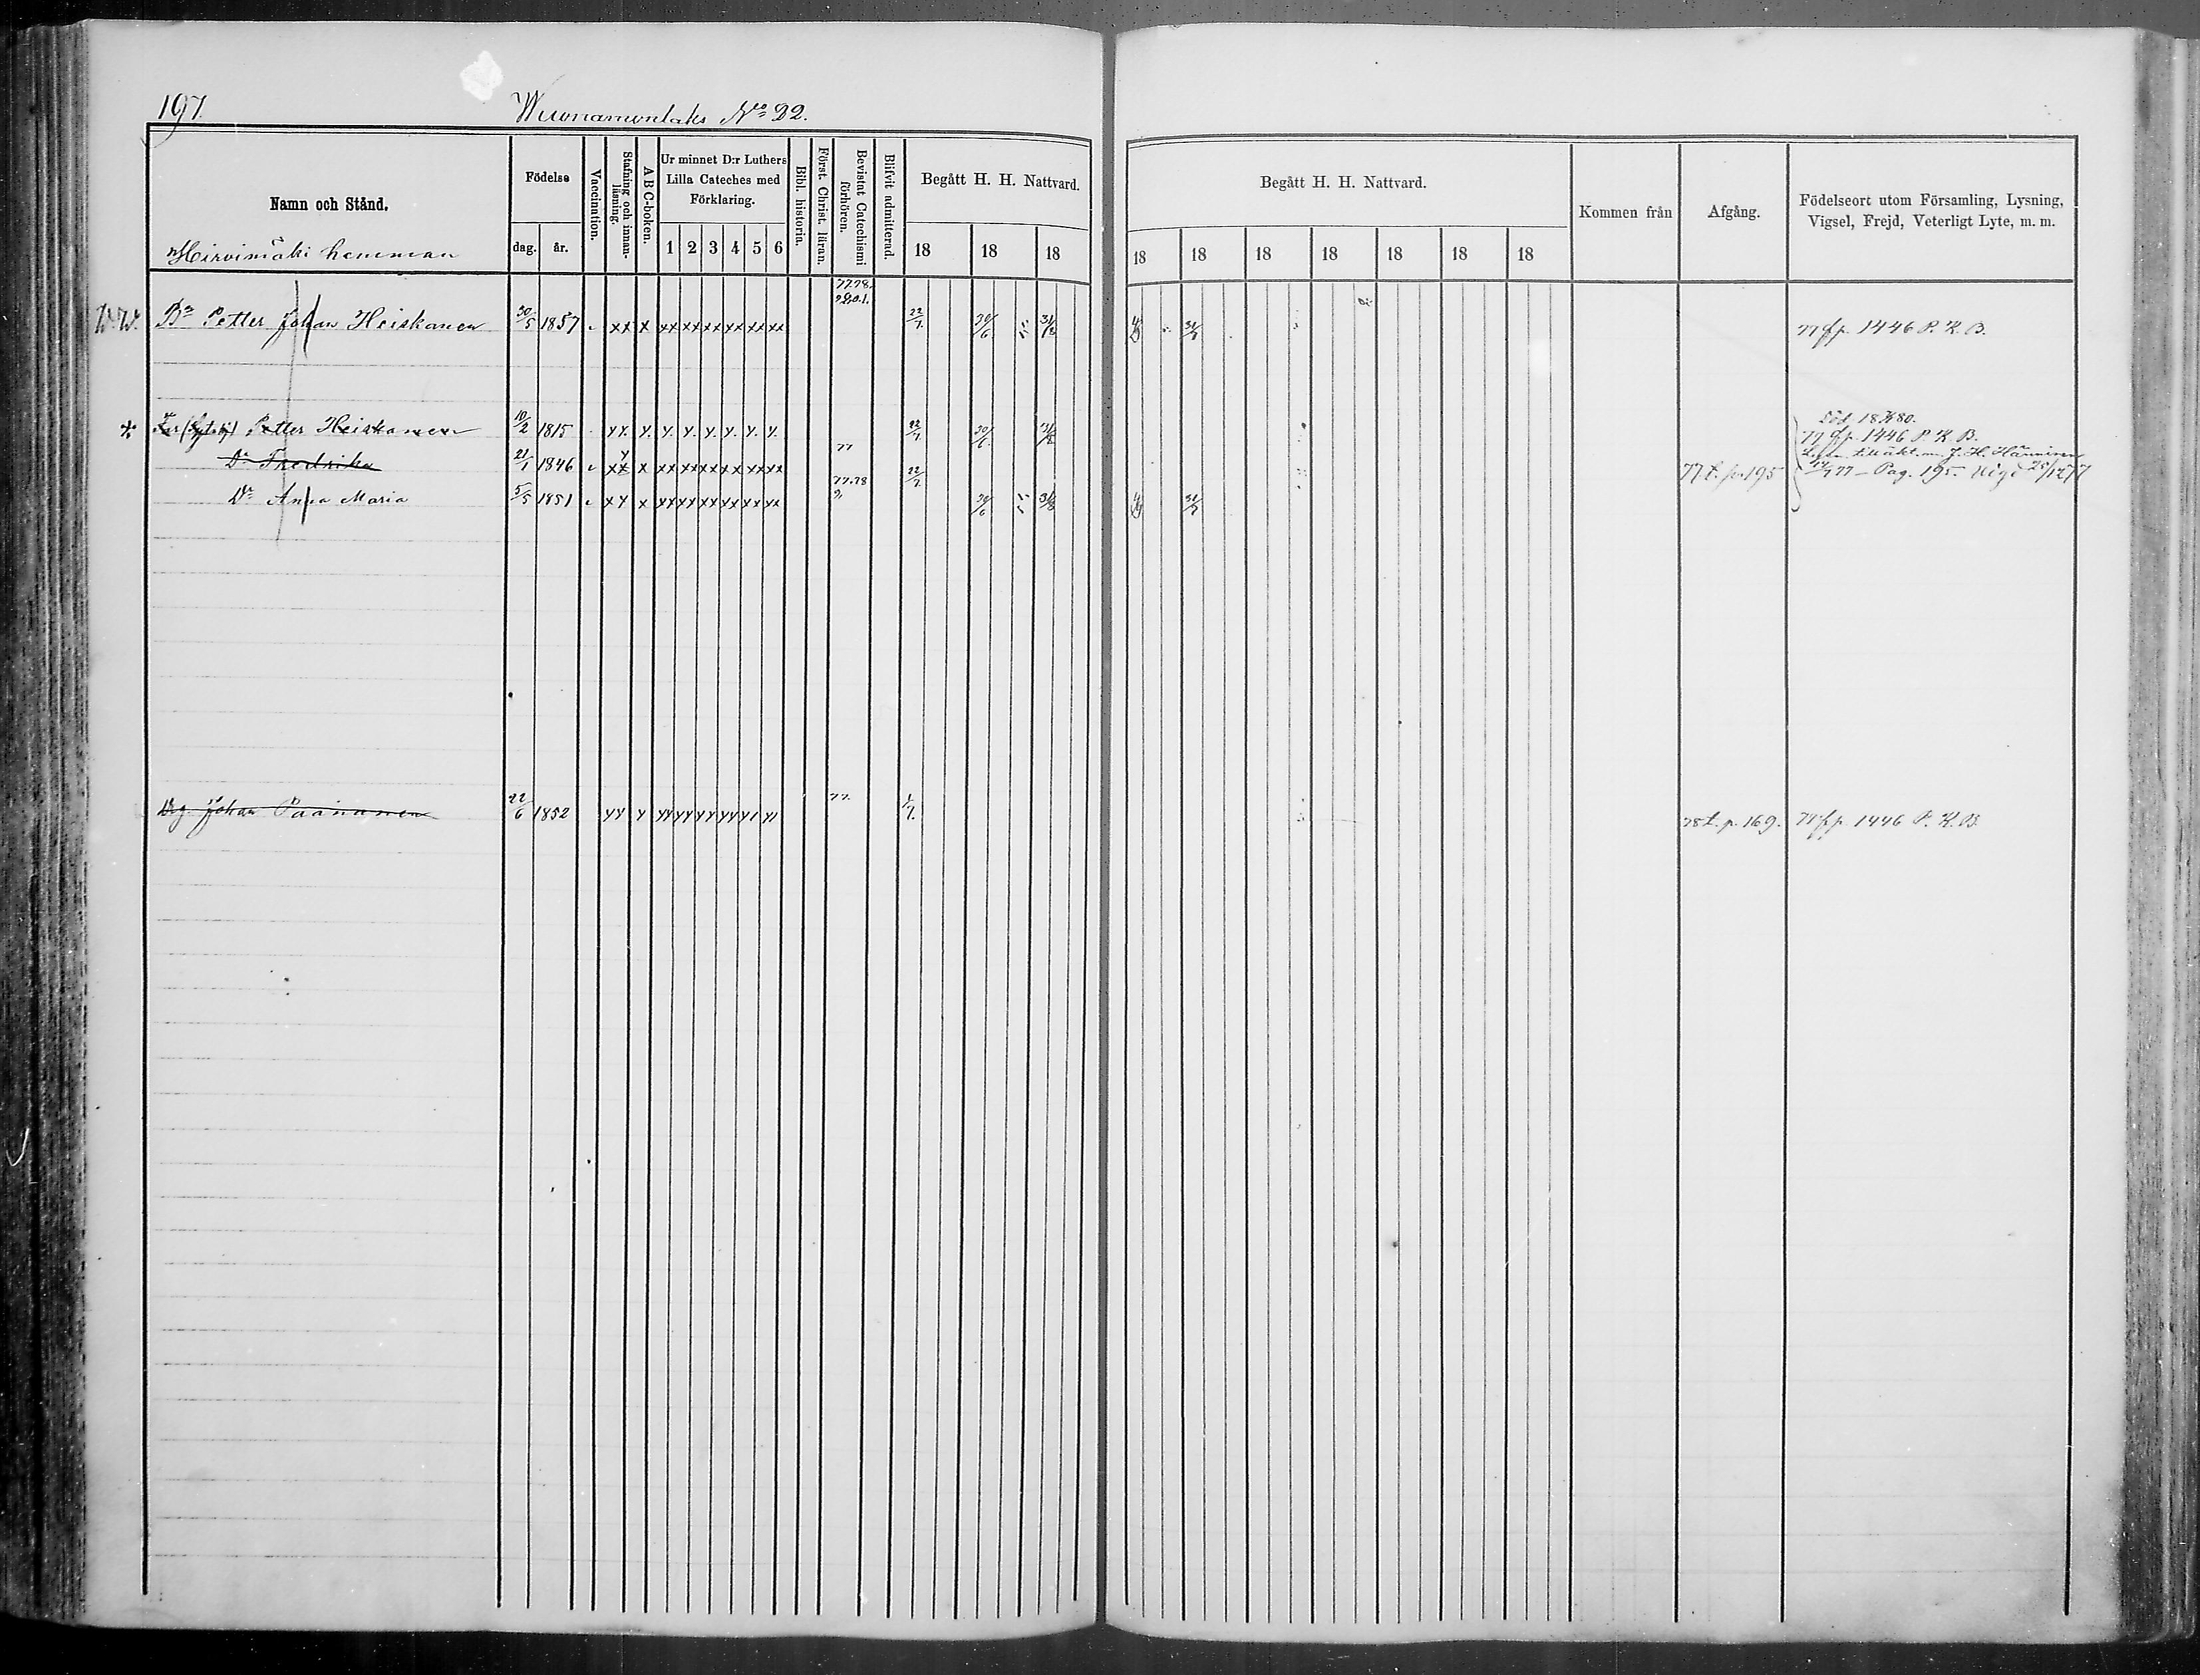 197.
Wuonamonlaks No 22.
Namn och Stånd.
Hirvimäki hemman
Födelse
dag. år.
Vaccination.
Stafning och innanläsning.
A B C-boken.
Ur minnet D:r Luthers
Lilla Cateches med
Förklaring.
1 2 3 4 5 6
Bibl. historia.
Först. Christ. läran.
Bevistat Catechismi förhören.
Blifvit admitterad.
Begått H. H. Nattvard.
18 18 18
Begått H. H. Nattvard.
18 18 18 18 18 18 18
Kommen från
Afgång.
Födelseort utom Församling, Lysning,
Vigsel, Frejd, Veterligt Lyte, m. m.
77.78.
Petter Johan Heiskanen 30/5 1857 xx x xx xx xx xx xx xx 22/7 77 fp. 1446 P. K. B.
Död 80.
Petter Heiskanen 10/2 1815 yy. y. y. y. y. y. y. y. 22/7 77 fp. 1446 P. K. B.
Dr Fredrika 21/1 1846 xx x xx xx xx xx xx xx 77 22/7 77 t. p. 195 J. H. Hänninen
77 – Pag. 195. Vigd 26/12 77
Dr Anna Maria 5/5 1851 xy x xx xx xx xx xx xx 77.78
Johan Paananen 22/6 1852 yy y yy yy yy yy yy yy 77. 1/7. 78 t. p. 169. 77 fp 1446 P. K. B.